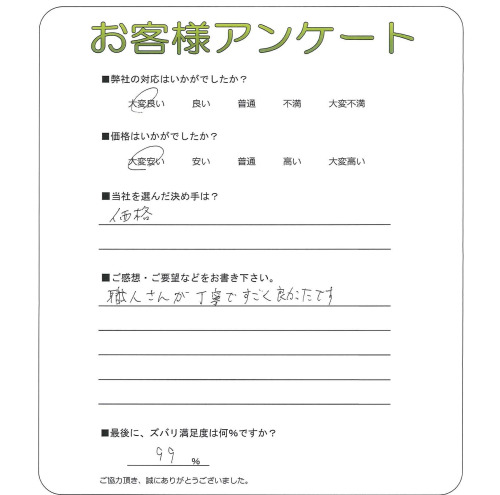 お客様アンケート
■弊社の対応はいかがでしたか？
大変良い 良い 普通 不満 大変不満
■価格はいかがでしたか？
大変安い 安い 普通 高い 大変高い
■当社を選んだ決め手は？
価格
■ご感想・ご要望などをお書き下さい。
職人さんが丁寧ですごく良かたです
■最後に、ズバリ満足度は何%ですか？
99 %
ご協力頂き、誠にありがとうございました。